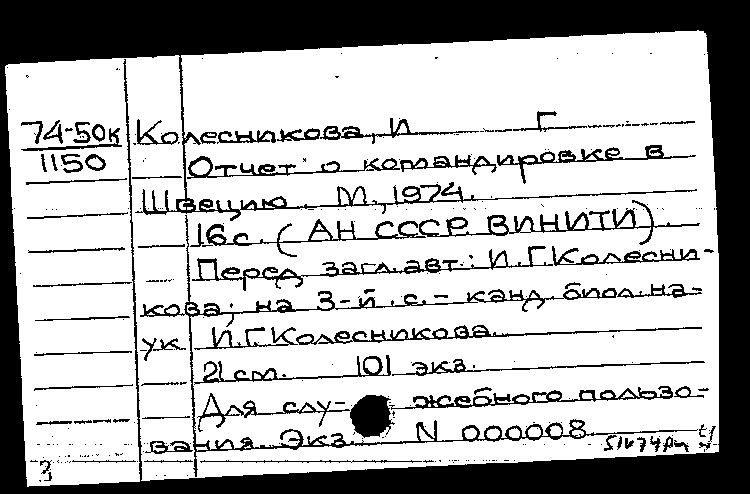 74-50к Колесникова, И Г
1150 Отчет о командировке в
Швецию. М., 1974.
16с. (АН СССР ВИНИТИ).
Перед загл. авт.: И.Г.Колесни-
кова; на 3-й с. - канд. биол. на-
ук И.Г.Колесникова.
21 см. 101 экз.
Для слу- жебного пользо-
вания. Экз. N 000008
3